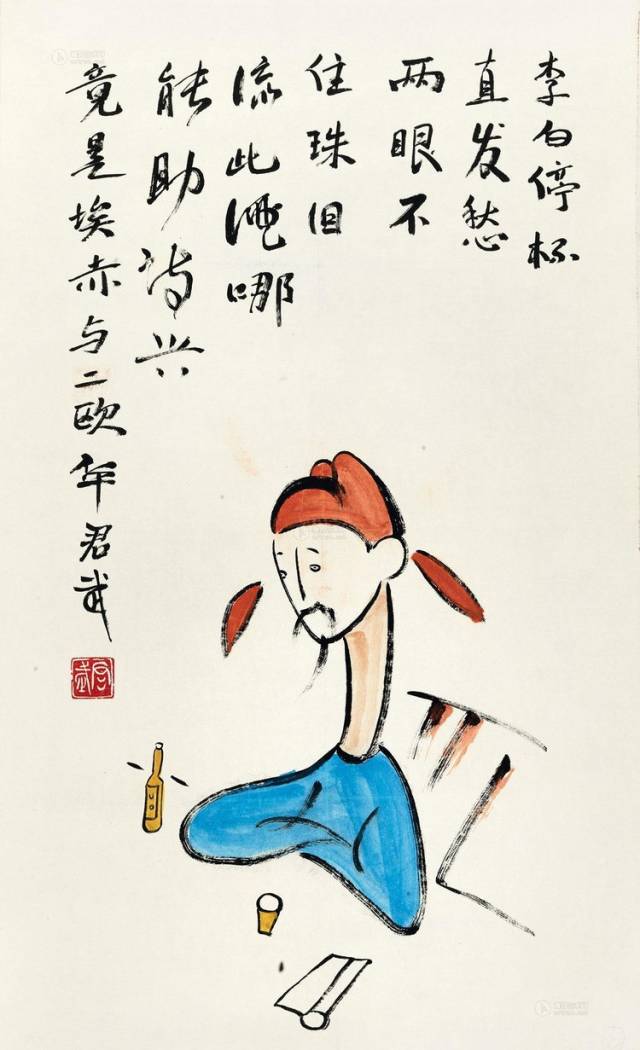 李白停杯
直发愁
两眼不
住珠泪
流此酒哪
能助诗兴
竟是埃赤与二欧 华君武
君武